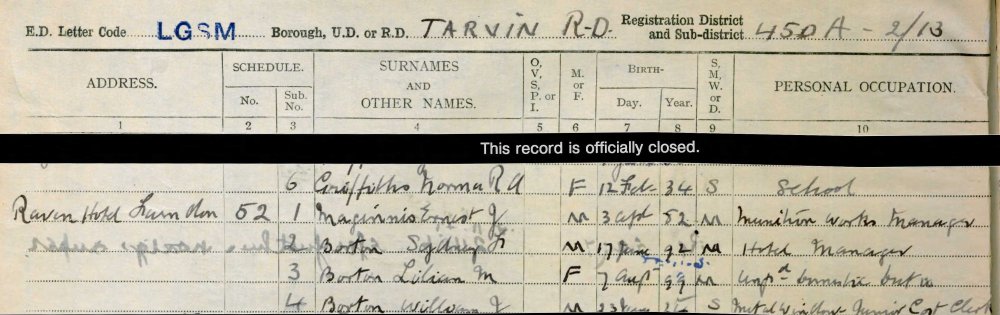 E.D. Letter Code LGSM Borough, U.D. or R.D. TARVIN R-D. Registration District and Sub-district 450 A - 2/13
ADDRESS. SCHEDULE. No. Sub. No. SURNAMES AND OTHER NAMES. O, V, S, P. or I. M. or F. BIRTH- Day. Year. S, M, W. or D. PERSONAL OCCUPATION.
1 2 3 4 5 6 7 8 9 10
This record is officially closed.
6 Griffiths Norma R A F 12 Feb 34 S School
Raven Hotel Farndon 52 1 Maginnis Ernest J M 3 52 M Munition Works Manager
2 Borton Sydney M 17 92 M Hotel Manager
3 Borton Lilian M F 7 Aug 99 M
4 Borton William J M 23 S Metal Window Junior Cost Clerk